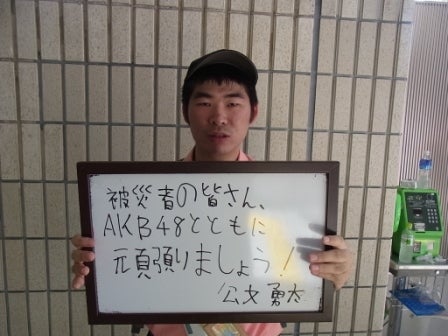 被災者の皆さん、
AKB48とともに
頑張りましょう!
公文 勇太